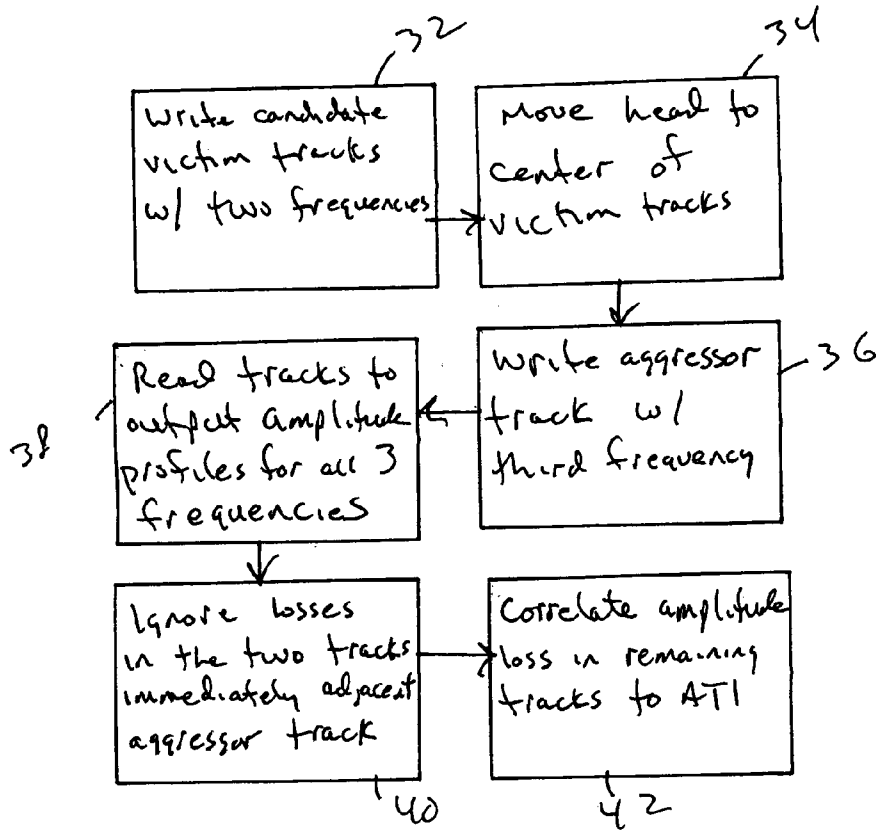 32
Write candidate
victim tracks
w/ two frequencies
34
Move head to
center of
victim tracks
36
Write aggressor
track w/
third frequency
38
Read tracks to
output amplitude
profiles for all 3
frequencies
Ignore losses
in the two tracks
immediately adjacent
aggressor track
40
Correlate amplitude
loss in remaining
tracks to ATI
42